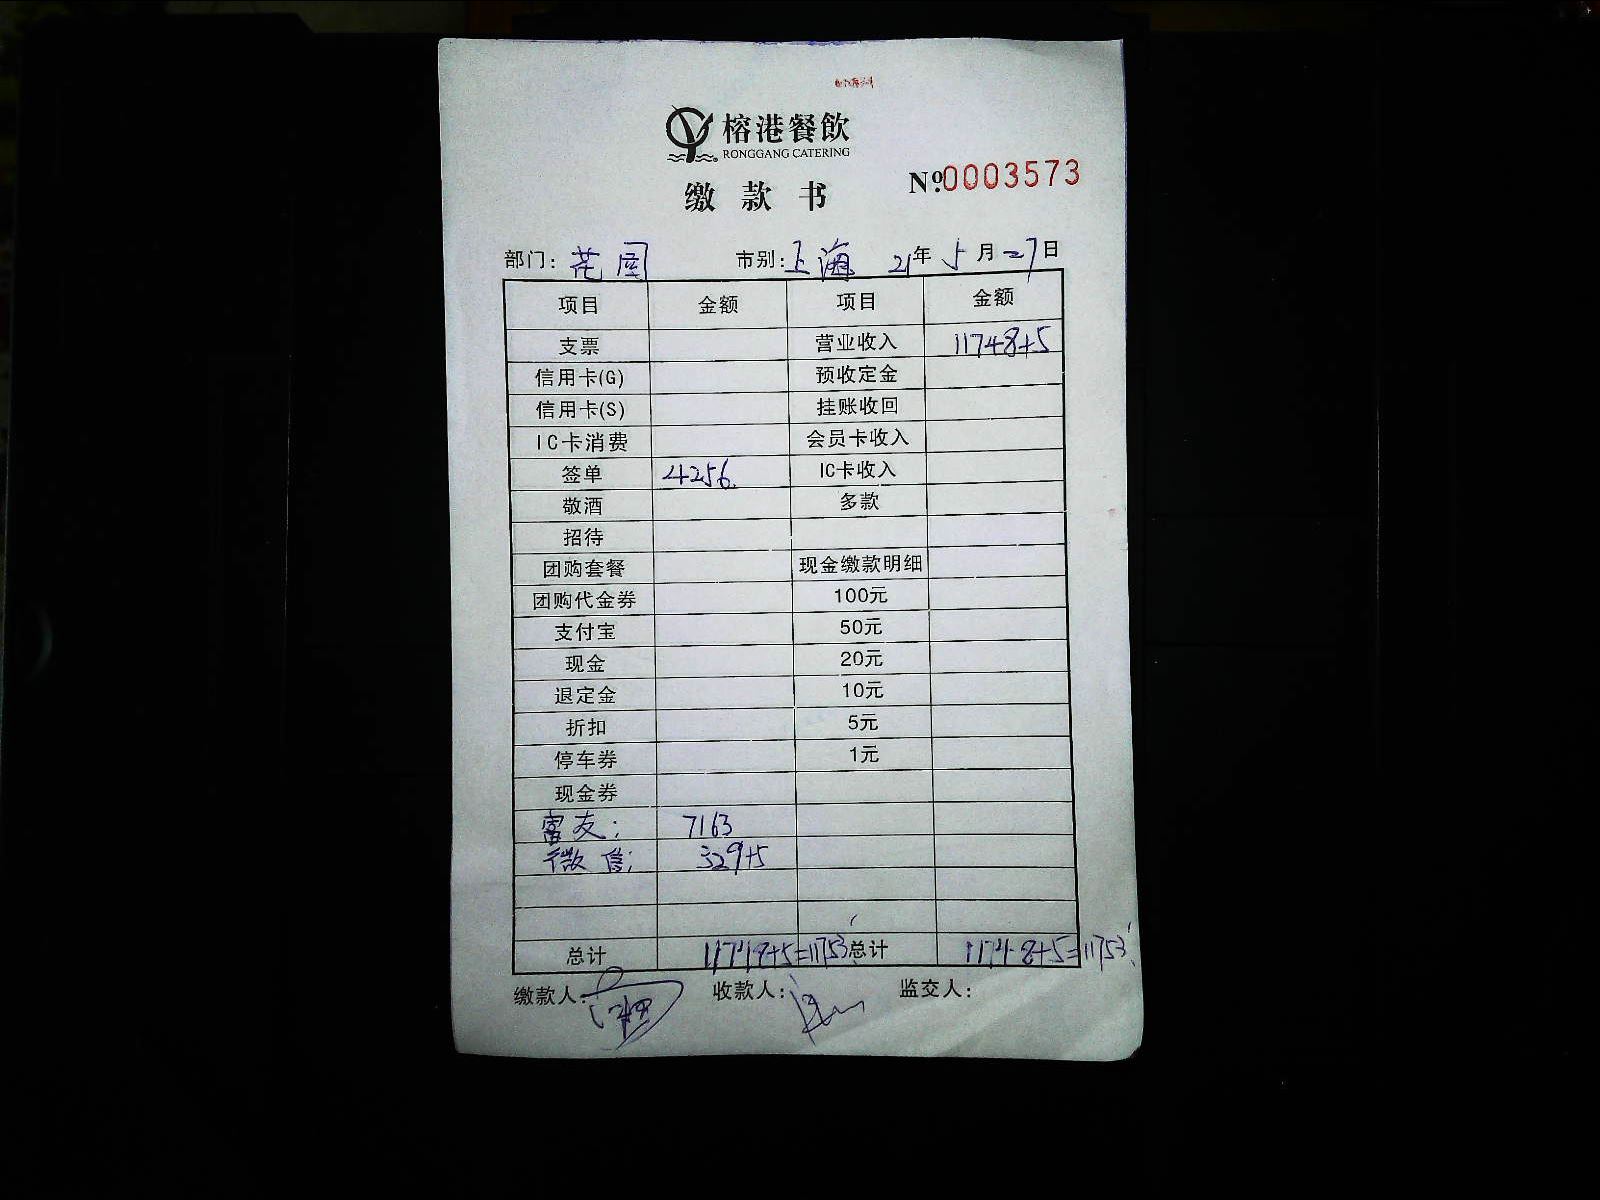 榕港餐飲
RONGGANG CATERING
缴款书 Nº.0003573
部门: 花园 市别: 上海 21年5月27日
项目 金额 项目 金额
支票 营业收入 11748+5
信用卡(G) 预收定金
信用卡(S) 挂账收回
IC卡消费 会员卡收入
签单 4256. IC卡收入
敬酒 多款
招待
团购套餐 现金缴款明细
团购代金券 100元
支付宝 50元
现金 20元
退定金 10元
折扣 5元
停车券 1元
现金券
富友: 7163
微信: 329+5
总计 11748+5=11753 总计 11748+5=11753
缴款人: 收款人: 监交人: